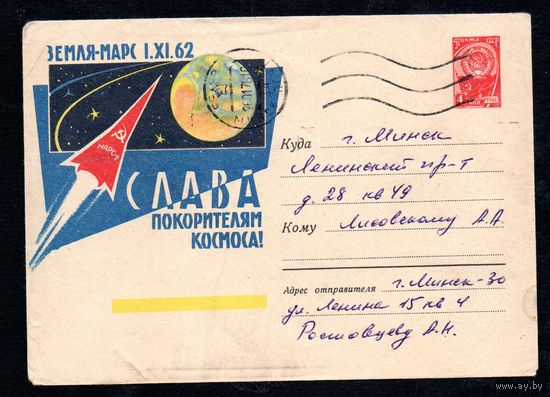 ЗЕМЛЯ-МАРС 1.XI.62
МАРС1
СЛАВА
ПОКОРИТЕЛЯМ
КОСМОСА!
ПОЧТА СССР
4
Куда г. Минск
Ленинский пр-т
д. 28 кв 49
Кому Лисовскому А.А.
Адрес отправителя г. Минск-30
ул. Ленина 15 кв 4
Ростовцеву А.Н.
www.ay.by